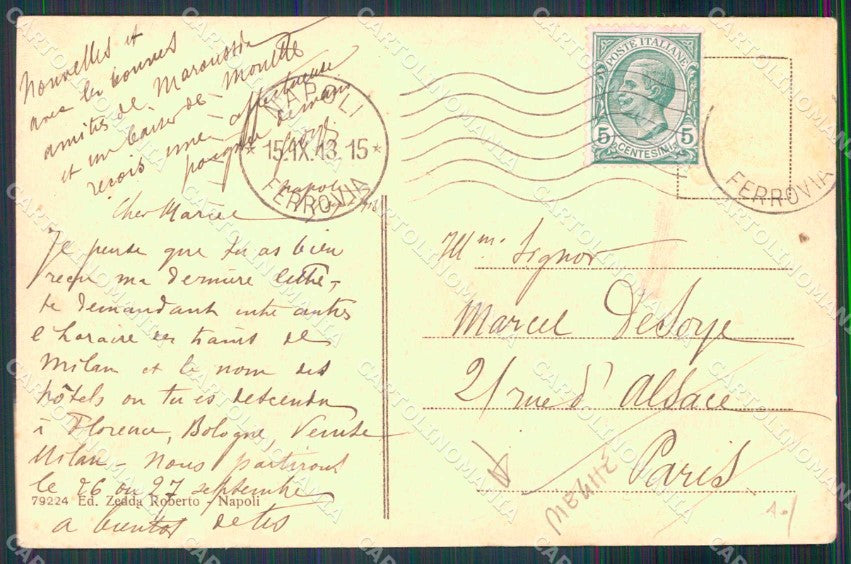 Nouvelles et
avec les bonnes
amitiés de
et un baiser de
reçois une affectueuse
poignée de main
Napoli
Cher Marcel
Je pense que tu as bien
reçu ma dernière lettre
te demandant entre autres
l'horaire des trains de
Milan et le nom des
hôtels ou tu es descendu
à Florence, Bologne, Venise
Milan - Nous partirons
le 26 ou 27 septembre
a bientot
79224 Ed. Zedda Roberto - Napoli
NAPOLI
* 15.IX.13.15 *
FERROVIA
POSTE ITALIANE
5 5
CENTESIMI
FERROVIA
Signor
Marcel DeSoye
21 rue d'Alsace
Paris
CARTOLINOMANIA